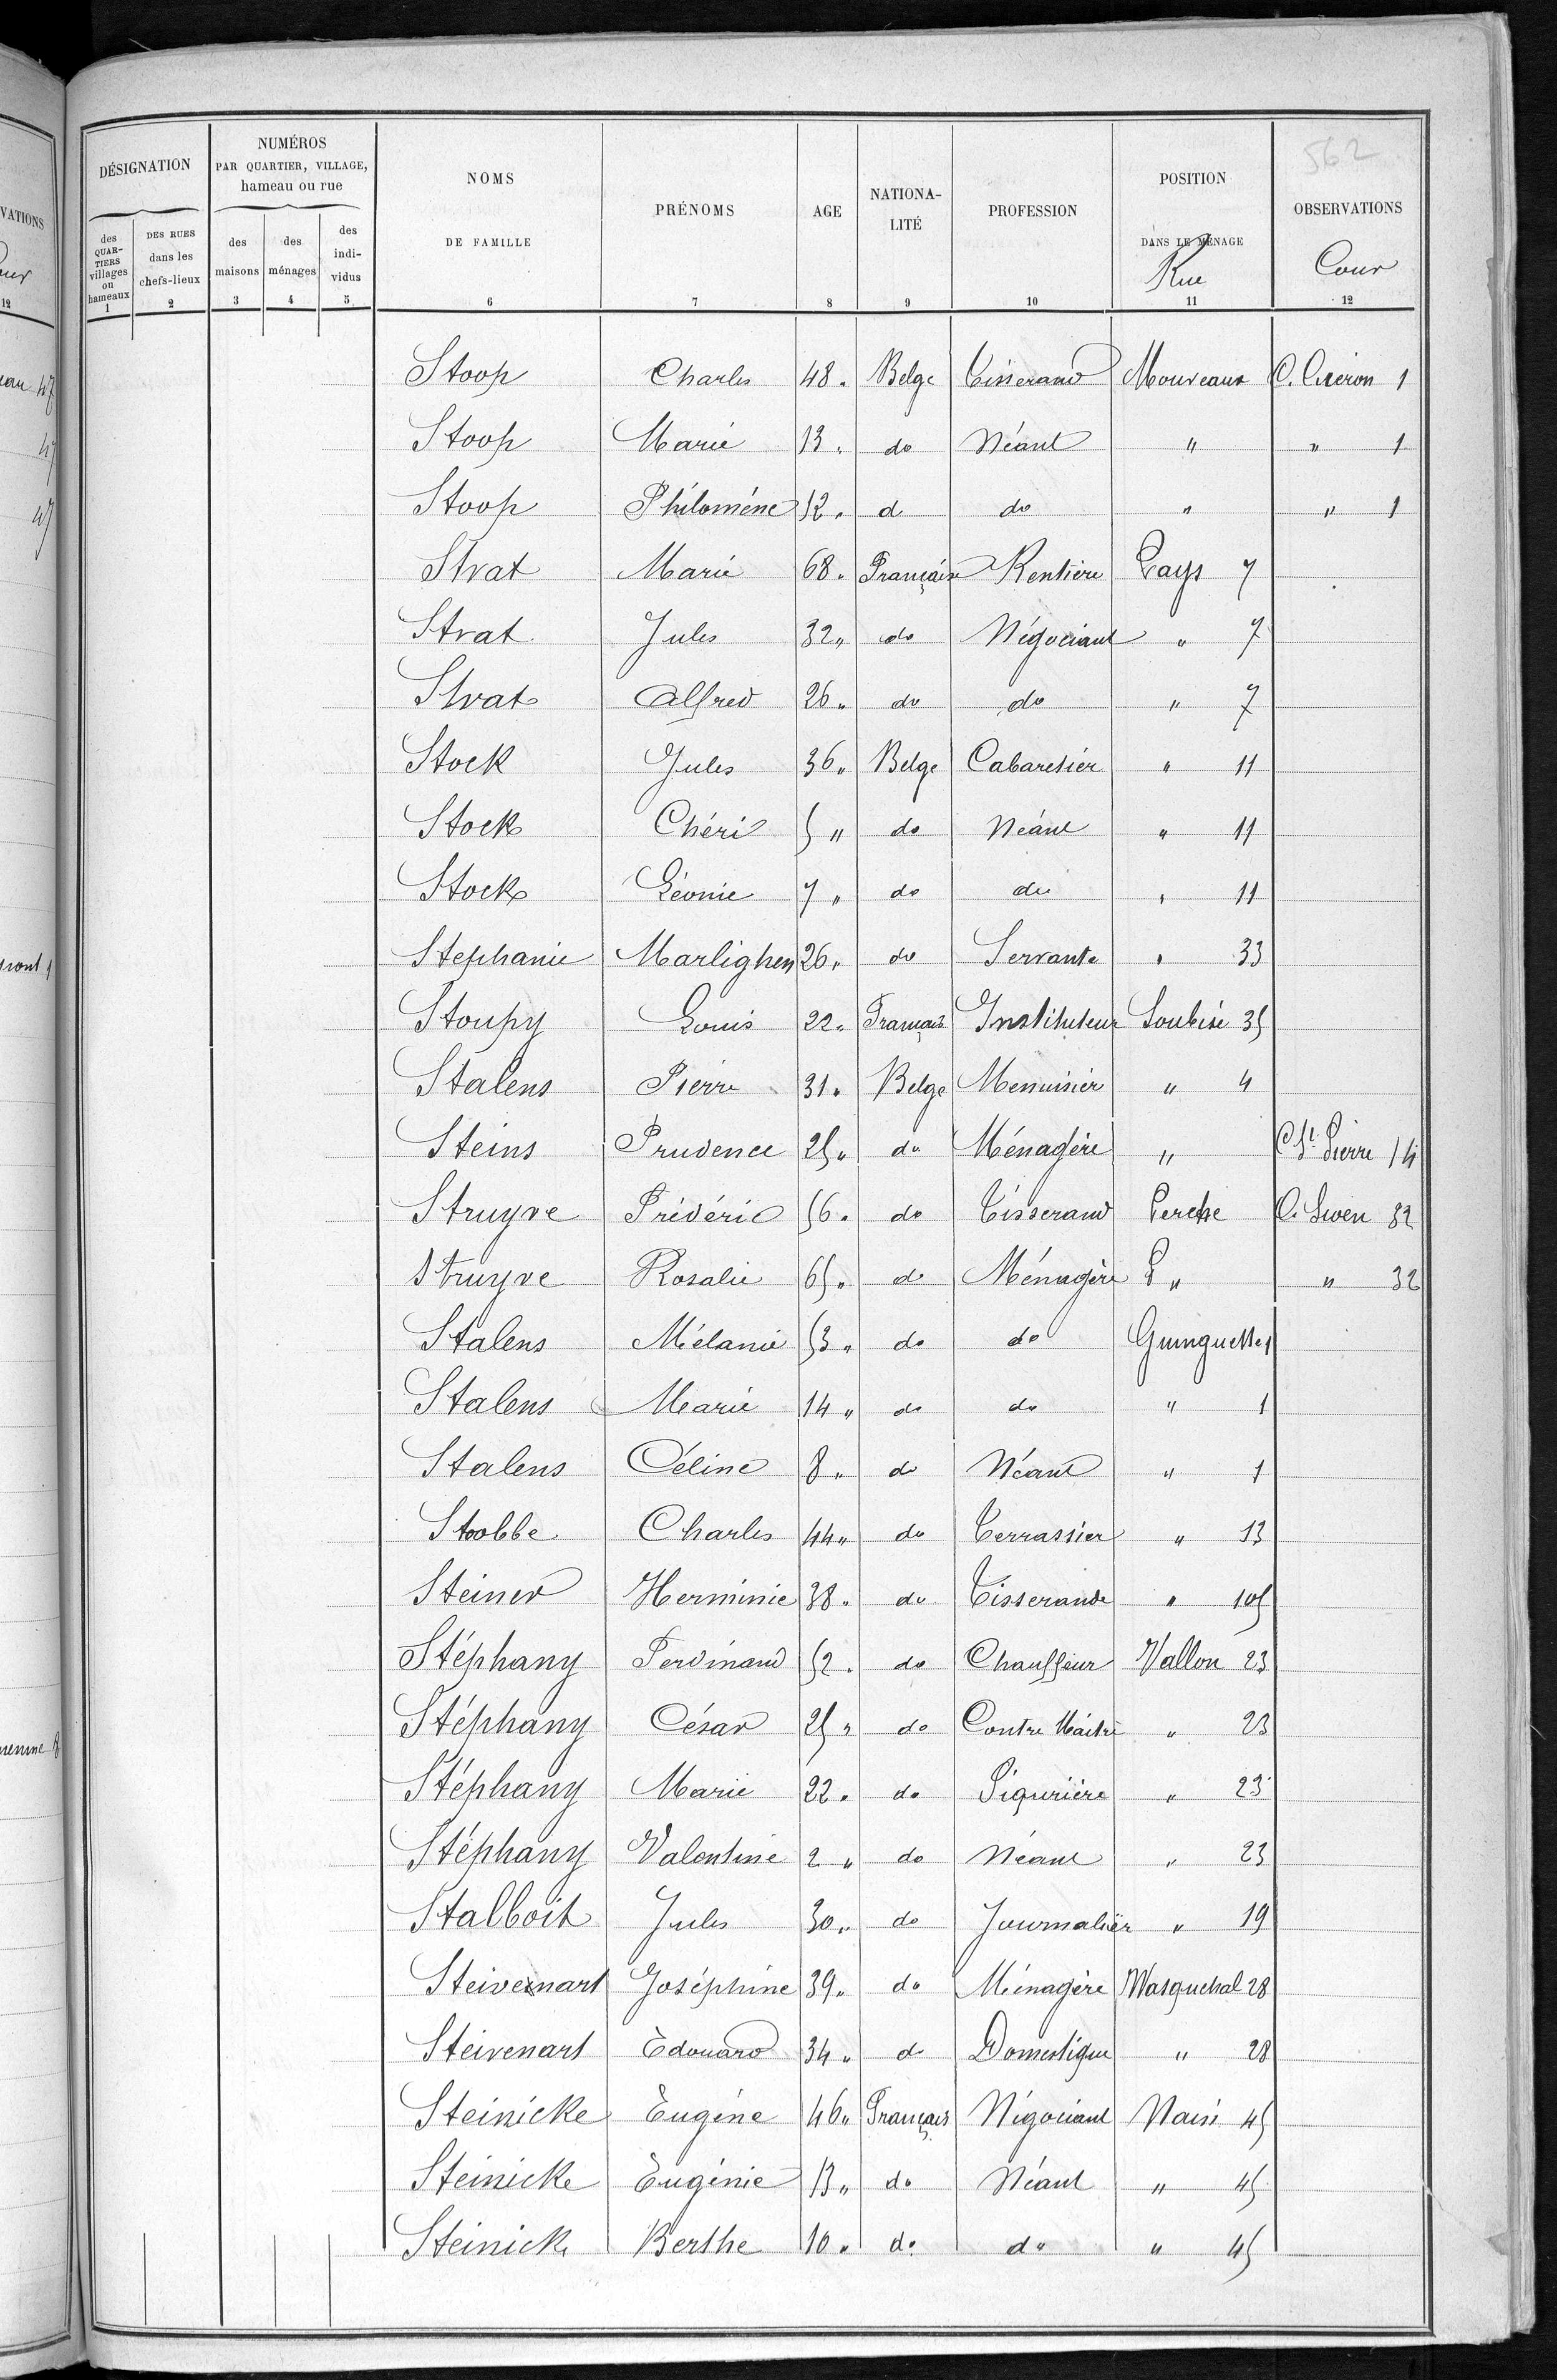 562
DÉSIGNATION | NUMÉROS PAR QUARTIER, VILLAGE, hameau ou rue | NOMS DE FAMILLE | PRÉNOMS | AGE | NATIONALITÉ | PROFESSION | POSITION DANS LE MÉNAGE Rue | OBSERVATIONS Cour
des QUARTIERS villages ou hameaux | DES RUES dans les chefs-lieux | des maisons | des ménages | des individus
1 2 3 4 5 6 7 8 9 10 11 12
Stoop Charles 48 " Belge Tisserand Mouveaux C. Cicéron 1
Stoop Marie 13 " do Néant " " 1
Stoop Philomène 12 " d do " " 1
Strat Marie 68 " Française Rentière Pays 7
Strat Jules 32 " do Négociant " 7
Strat Alfred 26 " do do " 7
Stock Jules 36 " Belge Cabaretier " 11
Stock Chéri 5 " do Néant " 11
Stock Léonie 7 " do do " 11
Stephanie Marlighen 26 " do Servante " 33
Stoupy Louis 22 " Français Instituteur Soubise 35
Stalens Pierre 31 " Belge Menuisier " 4
Steins Prudence 25 " do Ménagère " C St Pierre 14
Struyve Frédéric 56 " do Tisserand Perche C. Swen 32
Struyve Rosalie 65 " do Ménagère P " " 32
Stalens Mélanie 53 " do do Guinguette 1
Stalens Marie 14 " do do " 1
Stalens Céline 8 " do Néant " 1
Stobbe Charles 44 " do Terrassier " 13
Steiner Herminie 38 " do Tisserande " 105
Stéphany Ferdinand 52 " do Chauffeur Vallon 23
Stéphany César 25 " do Contre Maître " 23
Stéphany Marie 22 " do Piqurière " 23
Stéphany Valentine 2 " do Néant " 23
Stalboit Jules 30 " do Journalier " 19
Steivenart Joséphine 39 " do Ménagère Wasquehal 28
Steivenart Edouard 34 " do Domestique " 28
Steinicke Eugène 46 " Français Négociant Nain 45
Steinicke Eugénie 13 " do Néant " 45
Steinick Berthe 10 " do do " 45